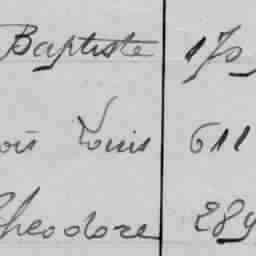 Baptiste 170
ois Louis 611
Theodore 289